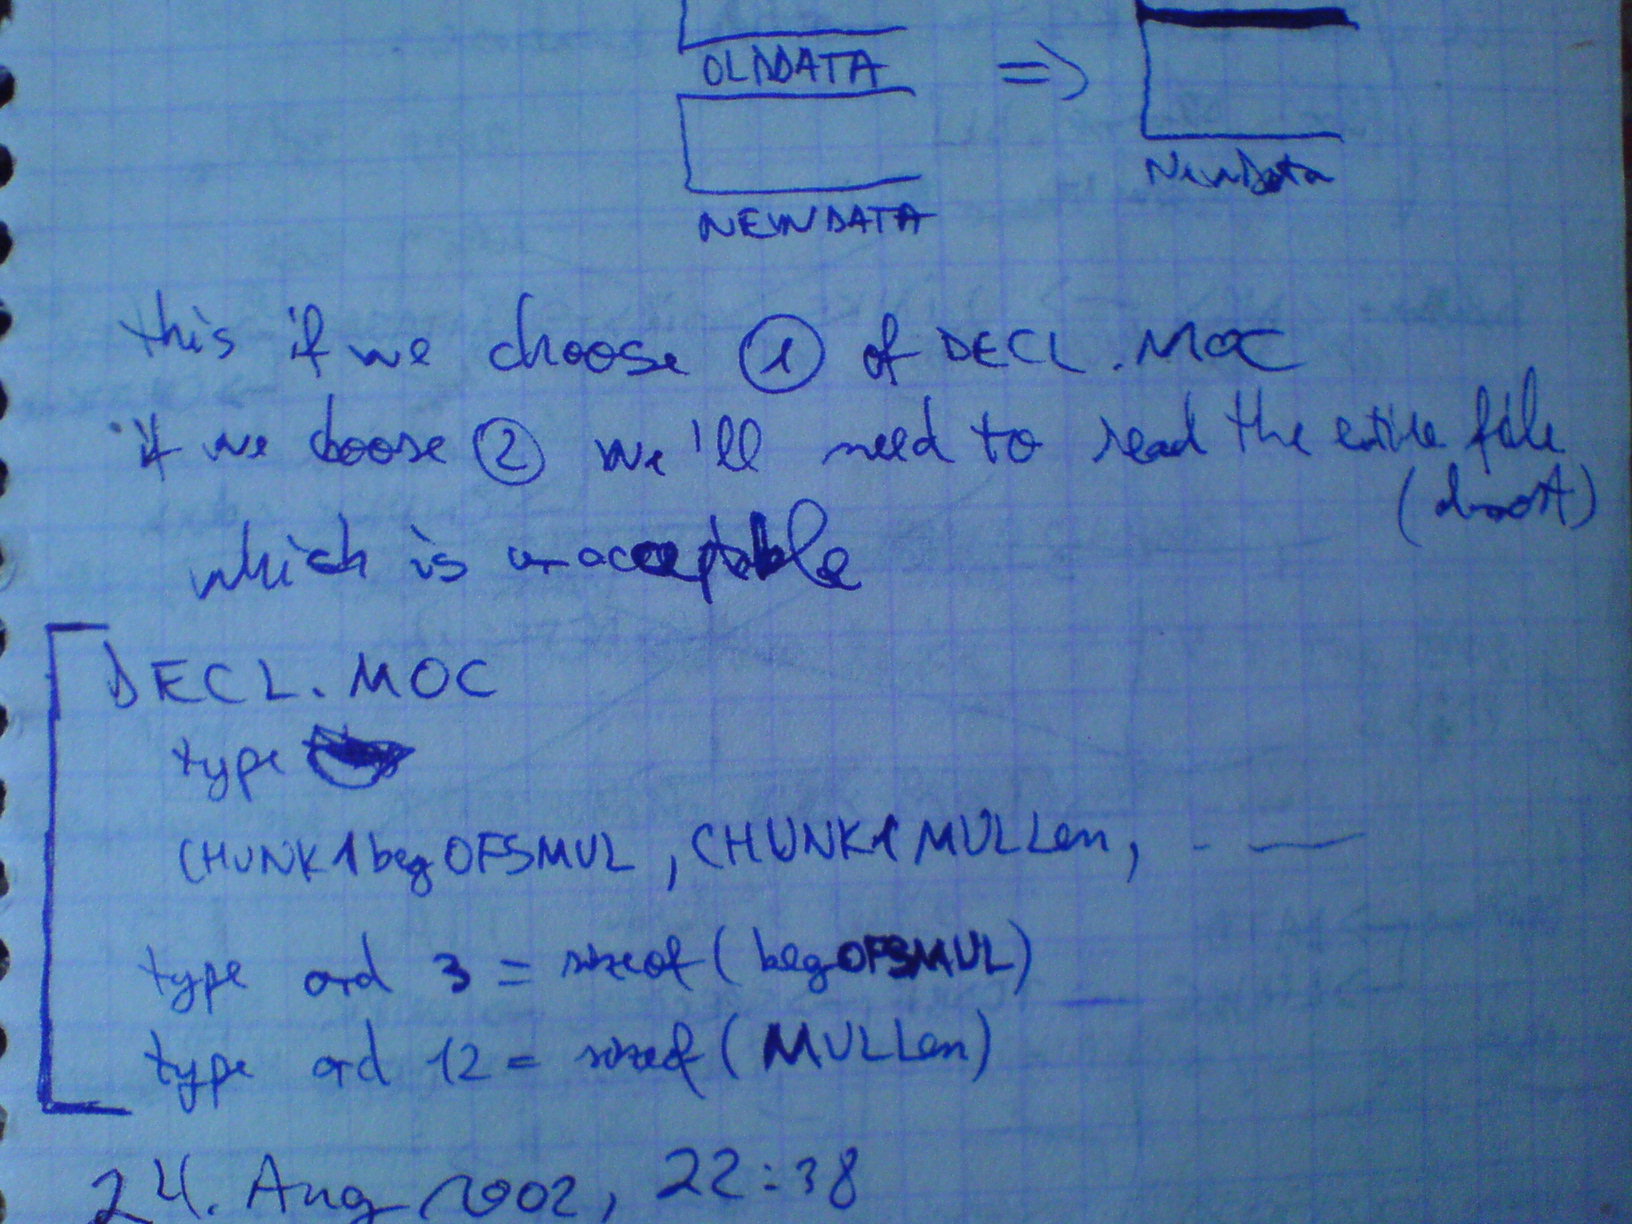 OLDDATA =>
NEWDATA
NewData
this if we choose ① of DECL.MOC
if we choose ② we'll need to read the entire file
(almost)
which is unacceptable
DECL.MOC
type
CHUNK1begOFSMUL, CHUNK1MULLen, - —
type ord 3 = sizeof(begOFSMUL)
type ord 12 = sizeof(MULLen)
24. Aug 2002, 22:38